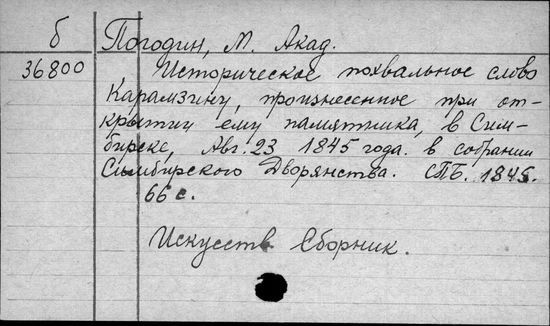 б Погодин, М. Акад.
36800 Историческое похвальное слово
Карамзину, произнесенное при от-
крытии ему памятника, в Сим-
бирске, Авг. 23 1845 года. в собрании
Симбирского Дворянства. СПБ. 1845.
66 с.
Искусств. Сборник.